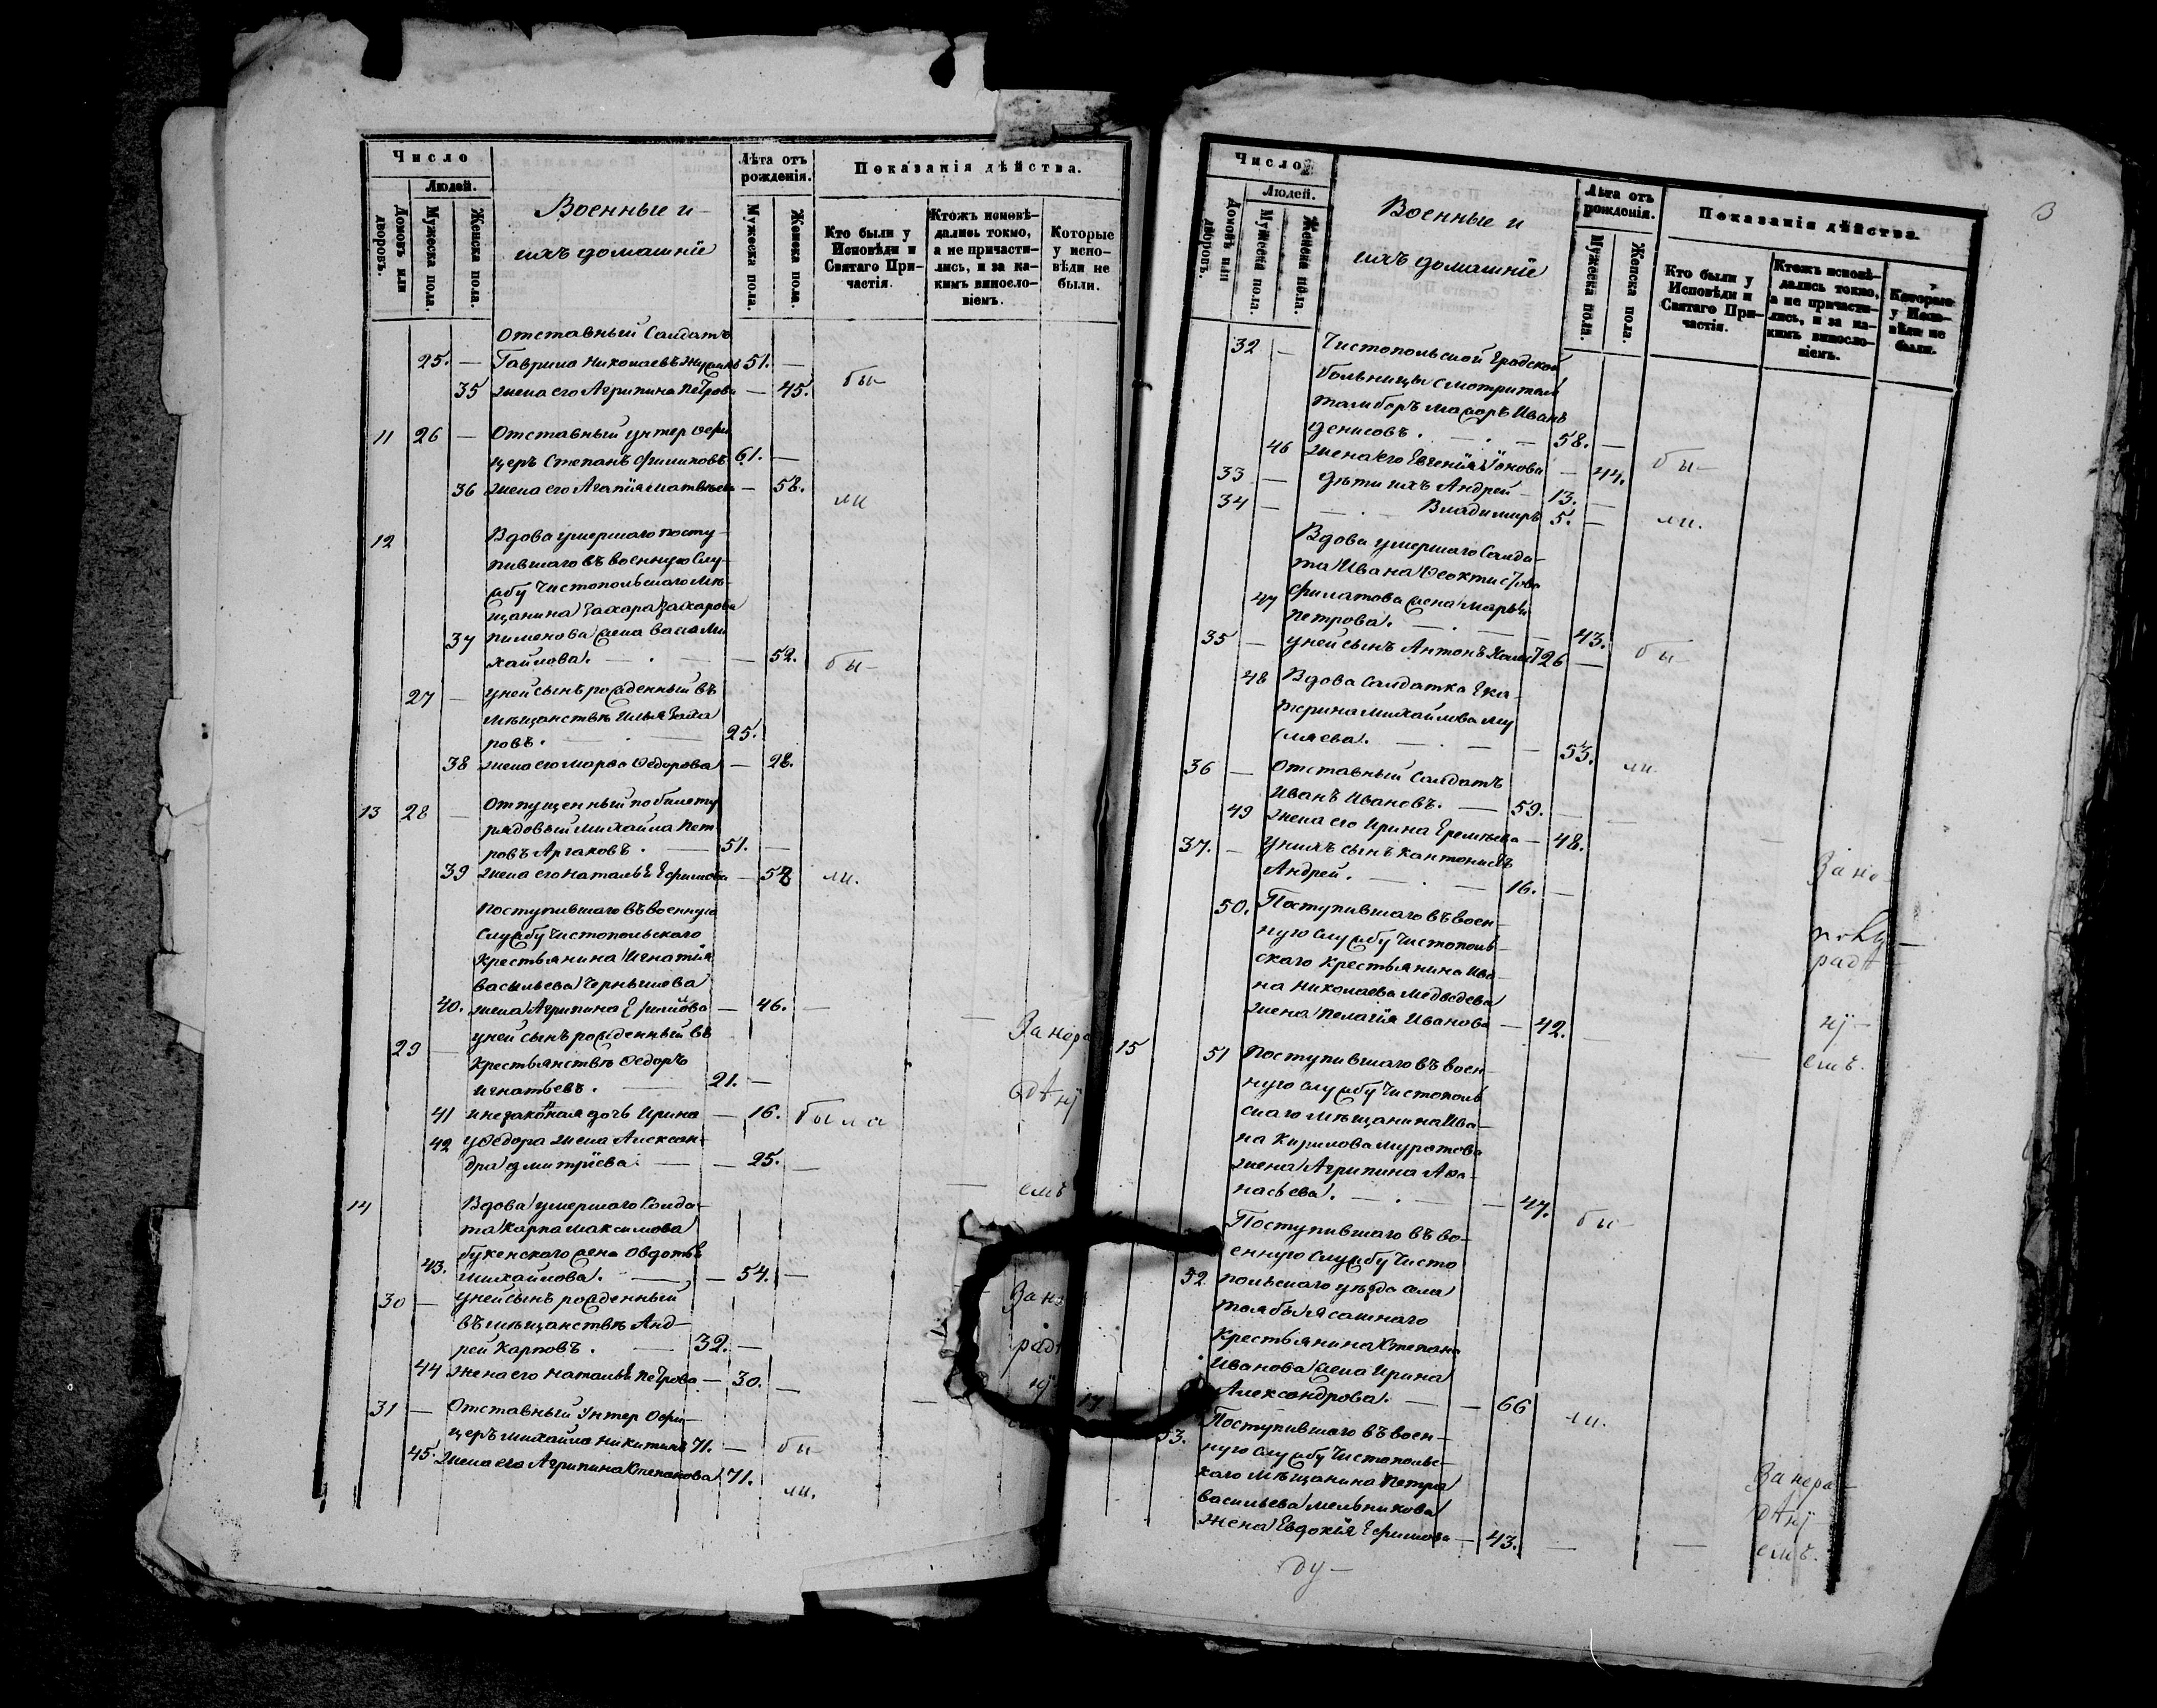 Число
Людей.
Домовъ или дворовъ.
Мужеска пола.
Женска пола.
Военные и
ихъ домашнiе
Лѣта отъ рожденiя.
Мужеска пола.
Женска пола.
Показанiя дѣйства.
Кто были у Исповѣди и Святаго Причастiя.
Ктожъ исповѣдались токмо, а не причастились, и за какимъ винословiемъ.
Которые у исповѣди не были.
Отставный Солдатъ
25. — Гаврило Николаевъ 51. —
35 жена его Агрипина Петрова — 45. бы-
11 26 — Отставный унтер офи
церъ Степанъ Филиповъ 61. —
36 жена его Агапiя Матвѣева — 58. ли
12 Вдова умершаго посту-
пившаго въ военную слу-
жбу Чистопольскаго мѣ-
щанина Захара Захарова
37 Пименова жена Васса Ми
хайлова. — . — — 52. бы-
27 — у ней сынъ рожденный въ
мѣщанствѣ Илья Заха
ровъ. — . — 25.
38 жена его Марѳа Ѳедорова — 28.
13 28 — Отпущенный по билету
рядовый Михайла Пет-
ровъ Аргаковъ. — 51. —
39 жена его Наталья Ефимова — 58 ли.
Поступившаго въ военную
службу Чистопольскаго
крестьянина Игнатiя
Васильева Чернышева
40. жена Агрипина Ефимова — 46. — —
29 — у ней сынъ рожденный въ За нера
крестьянствѣ Ѳедоръ
Игнатьевъ. — 21. — дѣнi
41 и незаконная дочь Ирина — 16. была
42 у Ѳедора жена Алексан-
дра Дмитрiева. — — 25. — — емъ
14 Вдова умершаго Солда-
та Карпа Максимова
43. жена Овдотья
Михайлова. — — 54. —
30 — у ней сынъ рожденный За не
въ мѣщанствѣ Анд-
рей Карповъ. — 32. — рад
44 Жена его Наталья Петрова — 30. —
31 — Отставный Унтер Офи-
церъ Михайла Никитинъ 71. — бы-
45. Жена его Агрипина Степанова 71. ли.
3
Число
Людей.
Домовъ или дворовъ.
Мужеска пола.
Женска пола.
Военные и
ихъ домашнiе
Лѣта отъ рожденiя.
Мужеска пола.
Женска пола.
Показанiя дѣйства.
Кто были у Исповѣди и Святаго Причастiя.
Ктожъ исповѣдались токмо, а не причастились, и за какимъ винословiемъ.
Которые у исповѣди не были.
32 — Чистопольской Градской
больницы смотритель
тамборъ мажоръ Иванъ
Денисовъ. — . — 58. —
46 жена его Евгенiя — 44. бы-
33 — дѣти ихъ Андрей — 13. —
34 — — . — Владимиръ 5. — ли.
Вдова умершаго Солда-
та Ивана Ѳеоктистова
47 Филатова жена Марья
Петрова. — . — — 43.
35 — у ней сынъ Антонъ 26 — бы-
48 Вдова Солдатка Ека-
терина Михайлова Му
сляева. — . — — 53. ли.
36 — Отставный Солдатъ
Иванъ Ивановъ. — 59. —
49 жена его Ирина Еремѣева — 48.
37. — у нихъ сынъ Кантонистъ
Андрей. — . — 16. — За не-
50. Поступившаго въ воен-
ную службу Чистополь-
скаго крестьянина Ива-
на Николаева Медведева
жена Пелагiя Иванова — 42. — — емъ.
15 51 Поступившаго въ воен-
ную службу Чистополь
скаго мѣщанина Ива-
на Кирилова Муратова
жена Агрипина Аѳа-
насьева. — . — — 47. бы-
Поступившаго въ во-
енную службу Чисто
52. польскаго уѣзда села
крестьянина Степана
Иванова жена Ирина
Александрова. — — 66 ли.
17 Поступившаго въ воен-
53. ную службу Чистополь-
скаго мѣщанина Петра За нера-
Васильева Мельникова дѣнi
жена Евдокiя Ефимова — 43. — — емъ.
ду-